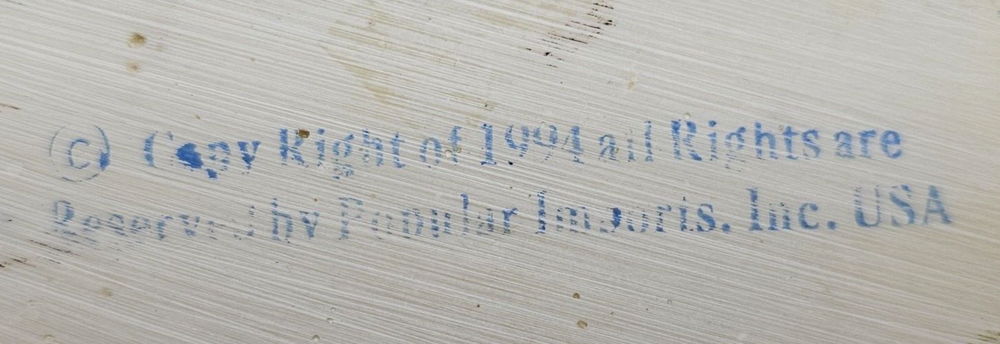 © Copy Right of 1994 all Rights are
Reserved by Popular Imports. Inc. USA